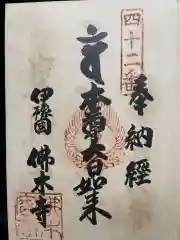 四十二番
奉納經
本尊大日如来
伊豫國
佛木寺